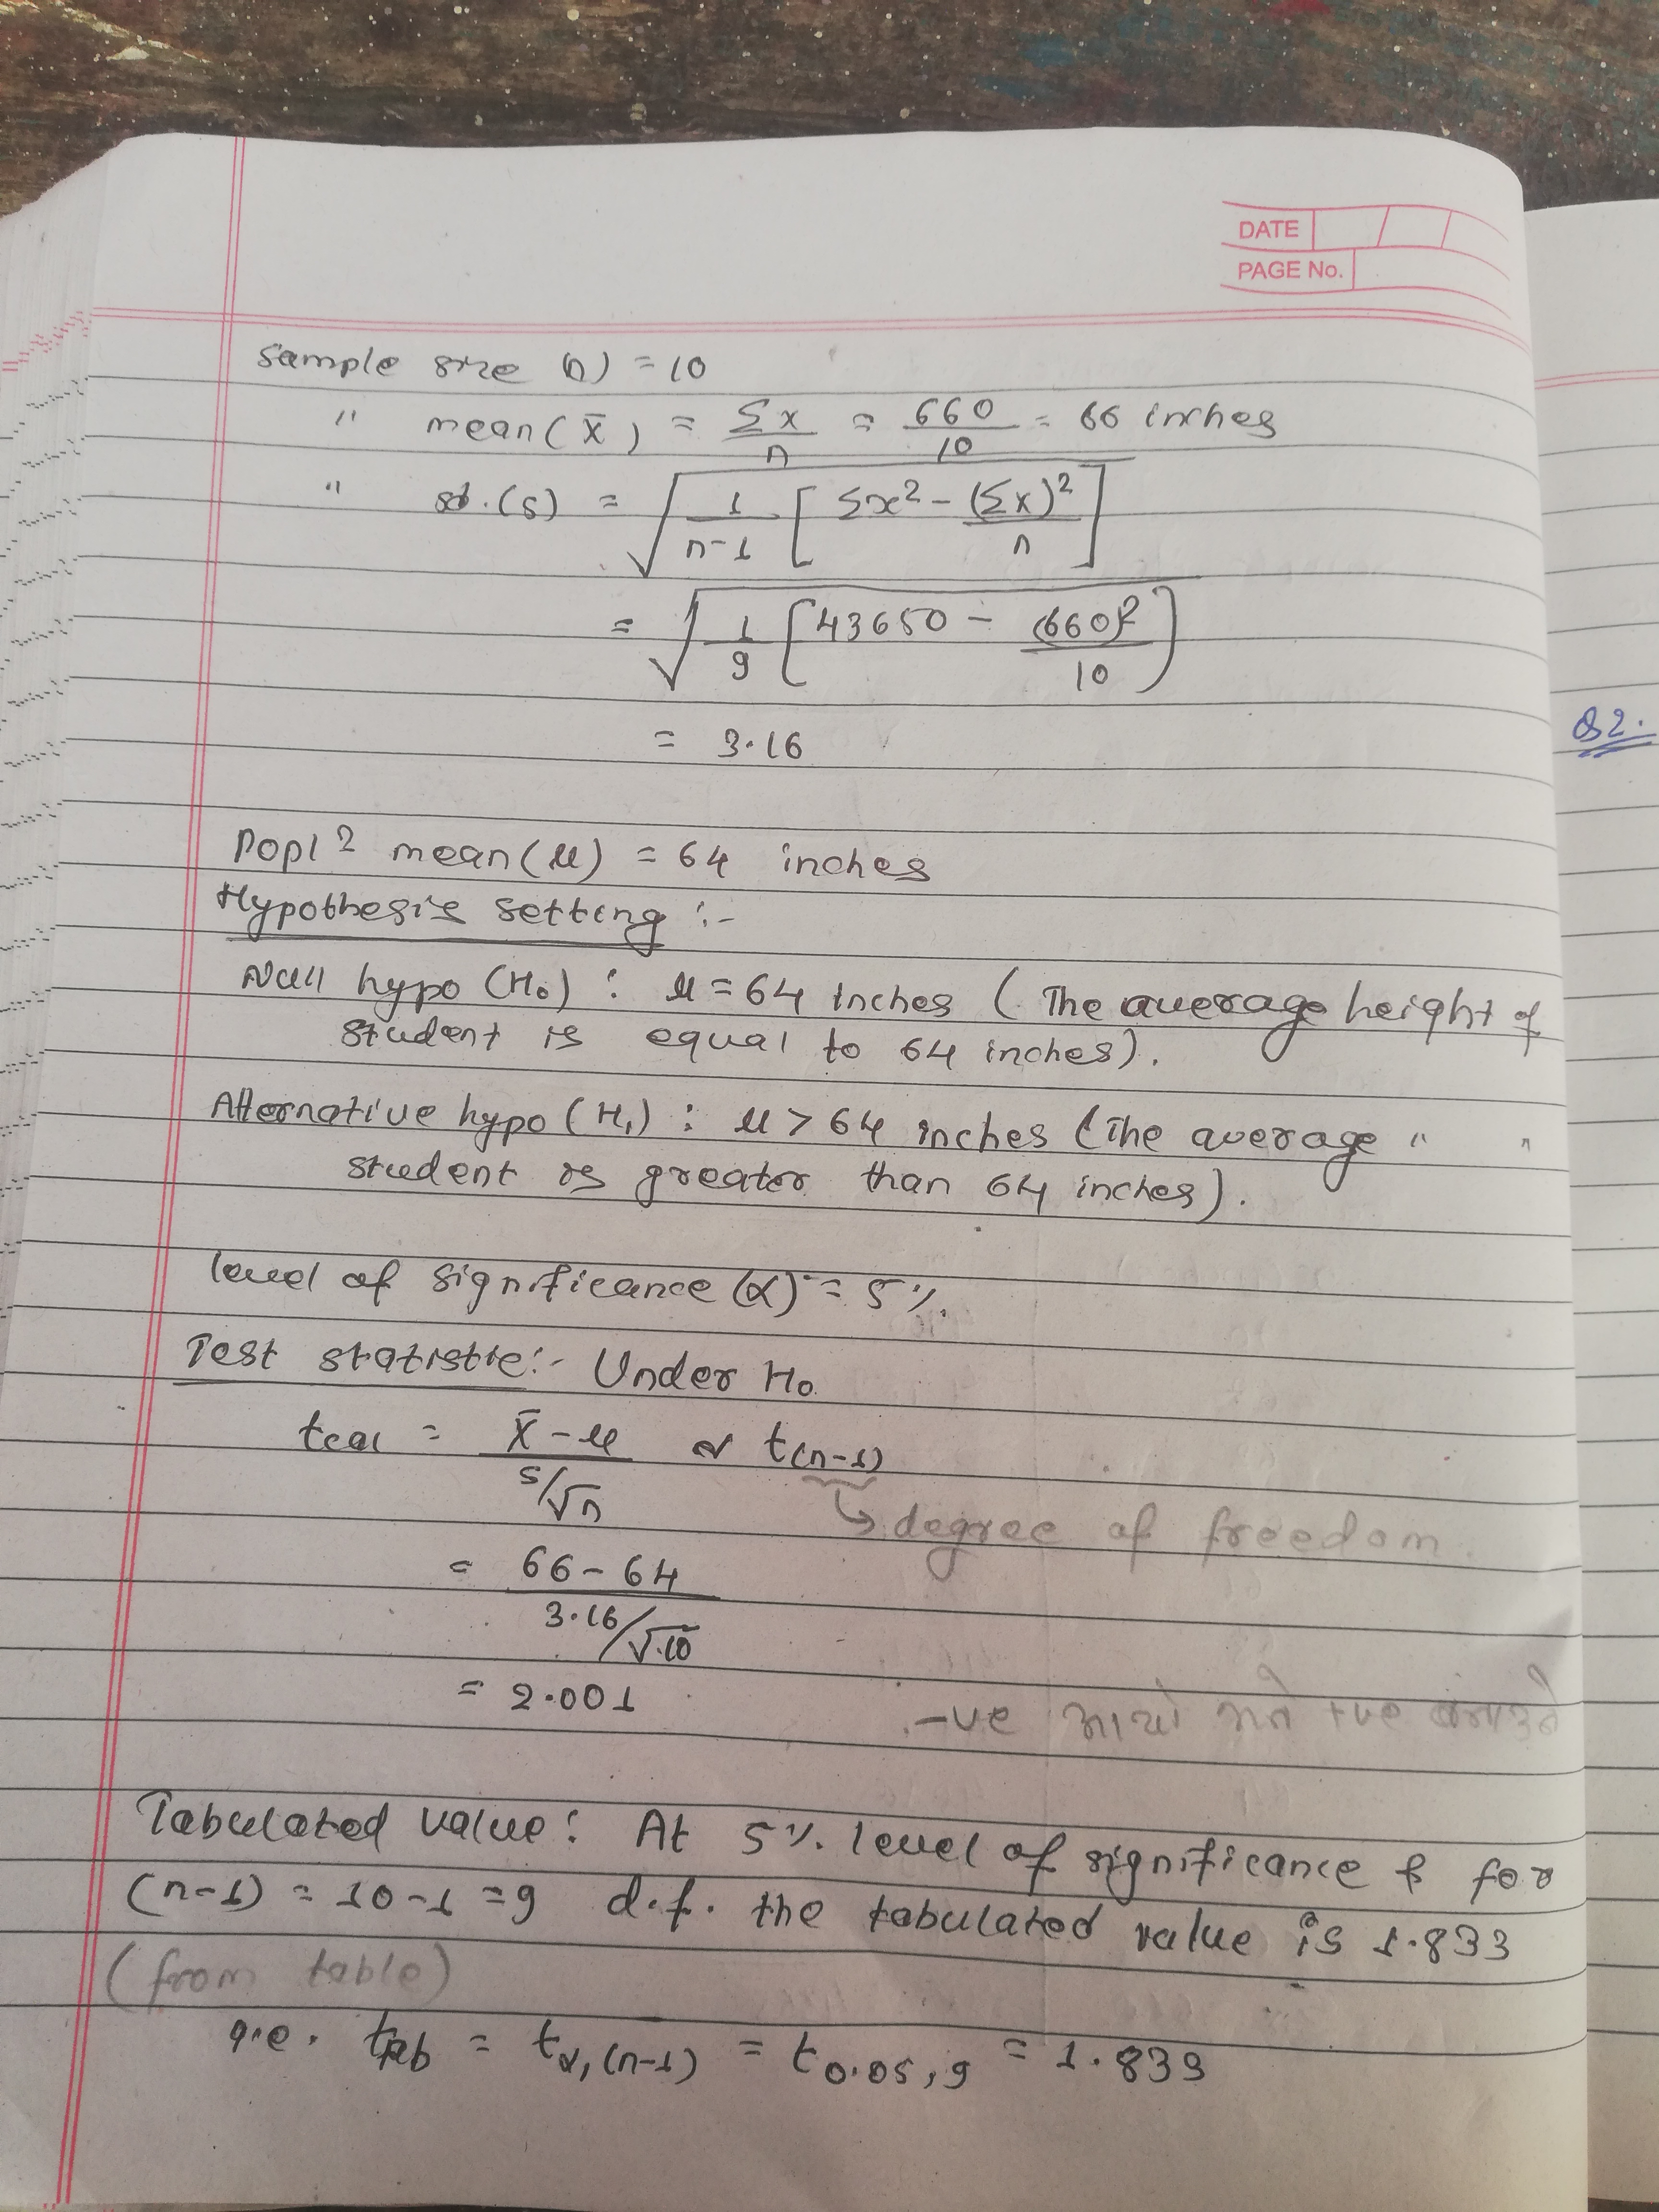 DATE
PAGE No.
Sample size (n) = 10
" mean (x̄) = Σx/n = 660/10 = 66 inches
" sd. (s) = √(1/(n-1) [Σx² - (Σx)²/n])
= √(1/9 [43650 - (660)²/10])
= 3.16
Q2.
Popl² mean (μ) = 64 inches
Hypothesis setting :-
Null hypo (H₀) : μ = 64 inches (The average height of
student is equal to 64 inches).
Alternative hypo (H₁) : μ > 64 inches (The average " "
student is greater than 64 inches).
level of significance (α) = 5%.
Test statistic :- Under H₀
tcal = (x̄ - μ)/(s/√n) ~ t(n-1)
↳ degree of freedom.
= (66 - 64)/(3.16/√10)
= 2.001
-ve आयो भने +ve बनाउने
Tabulated value : At 5% level of significance & for
(n-1) = 10-1 = 9 d.f. the tabulated value is 1.833
(from table)
i.e. ttab = tα,(n-1) = t0.05,9 = 1.833